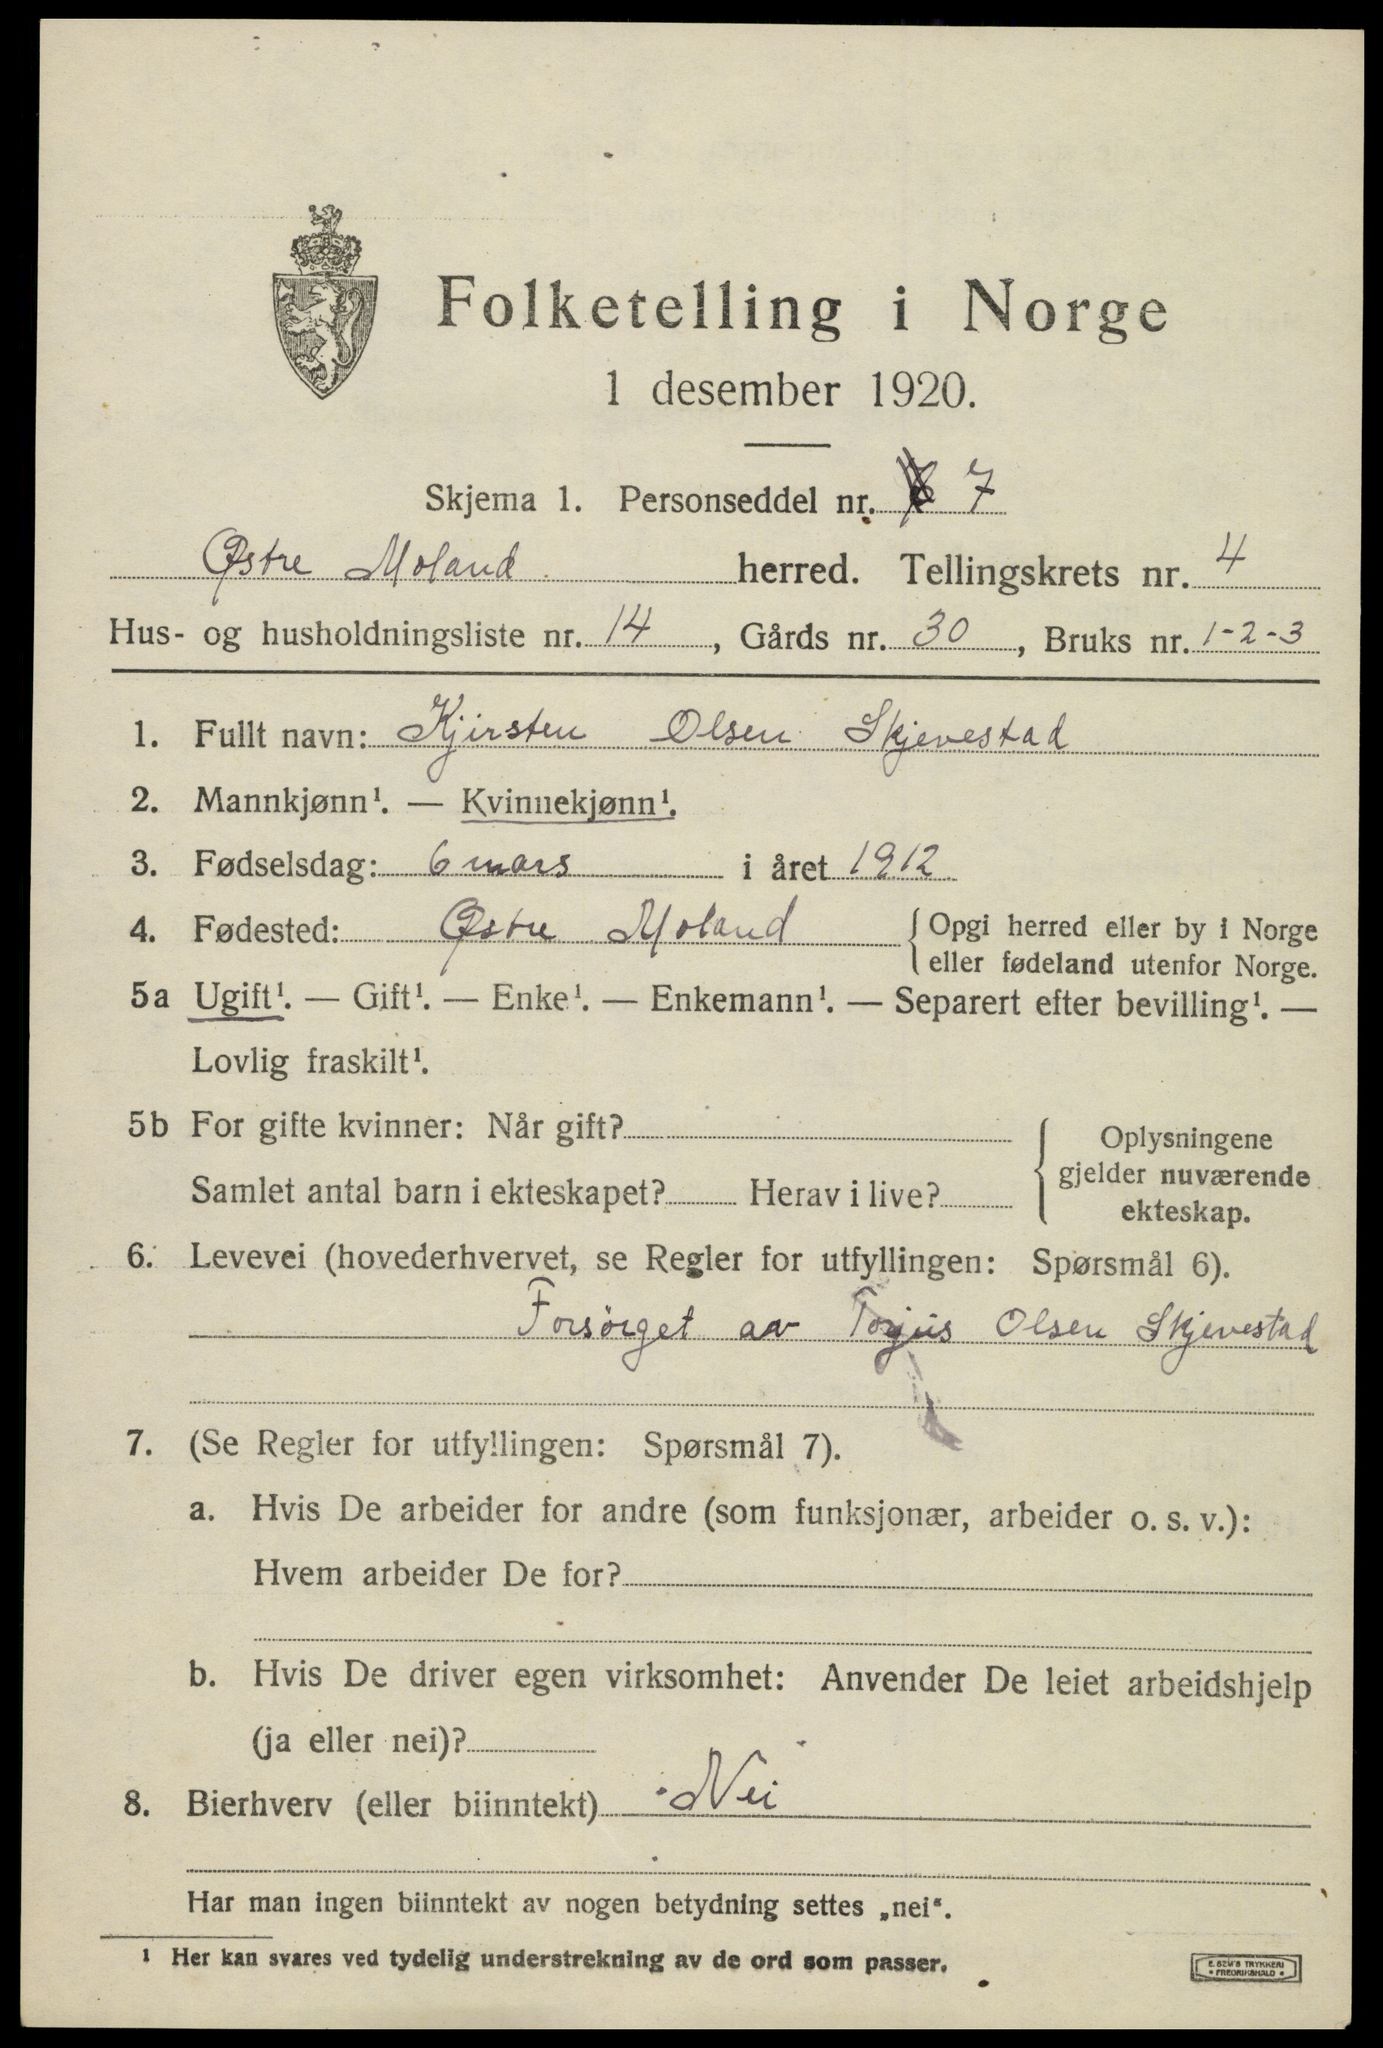 Folketelling i Norge
1 desember 1920.
Skjema 1. Personseddel nr. 7
Østre Moland herred. Tellingskrets nr. 4
Hus- og husholdningsliste nr. 14, Gårds nr. 30, Bruks nr. 1-2-3
1. Fullt navn: Kjirsten Olsen Skjevestad
2. Mannkjønn¹. — Kvinnekjønn¹.
3. Fødselsdag: 6 mars i året 1912
4. Fødested: Østre Moland { Opgi herred eller by i Norge
eller fødeland utenfor Norge.
5a Ugift¹. — Gift¹. — Enke¹. — Enkemann¹. — Separert efter bevilling¹. —
Lovlig fraskilt¹.
5b For gifte kvinner: Når gift?
Samlet antal barn i ekteskapet? Herav i live?
{ Oplysningene
gjelder nuværende
ekteskap.
6. Levevei (hovederhvervet, se Regler for utfyllingen: Spørsmål 6).
Forsørget av Torjus Olsen Skjevestad
7. (Se Regler for utfyllingen: Spørsmål 7).
a. Hvis De arbeider for andre (som funksjonær, arbeider o. s. v.):
Hvem arbeider De for?
b. Hvis De driver egen virksomhet: Anvender De leiet arbeidshjelp
(ja eller nei)?
8. Bierhverv (eller biinntekt) Nei
Har man ingen biinntekt av nogen betydning settes „nei“.
¹ Her kan svares ved tydelig understrekning av de ord som passer.
E. SEM'S TRYKKERI
• FREDRIKSHALD •